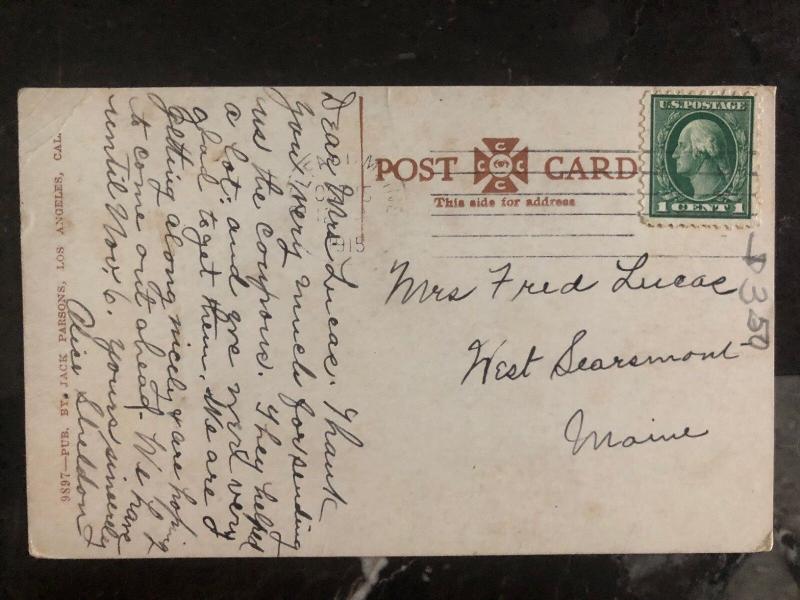 Dear Mrs Lucas: Thank
you very much for sending
us the coupons. They helped
a lot: and we were very
glad to get them. We are
getting along nicely & are hoping
to come out ahead. We have
until Nov. 6. Yours sincerely
Alice Sheldon
9897—PUB. BY JACK PARSONS, LOS ANGELES, CAL.
POST CARD
C C C C
This side for address
U.S. POSTAGE
1 CENT 1
Mrs Fred Lucas
West Searsmont
Maine
350